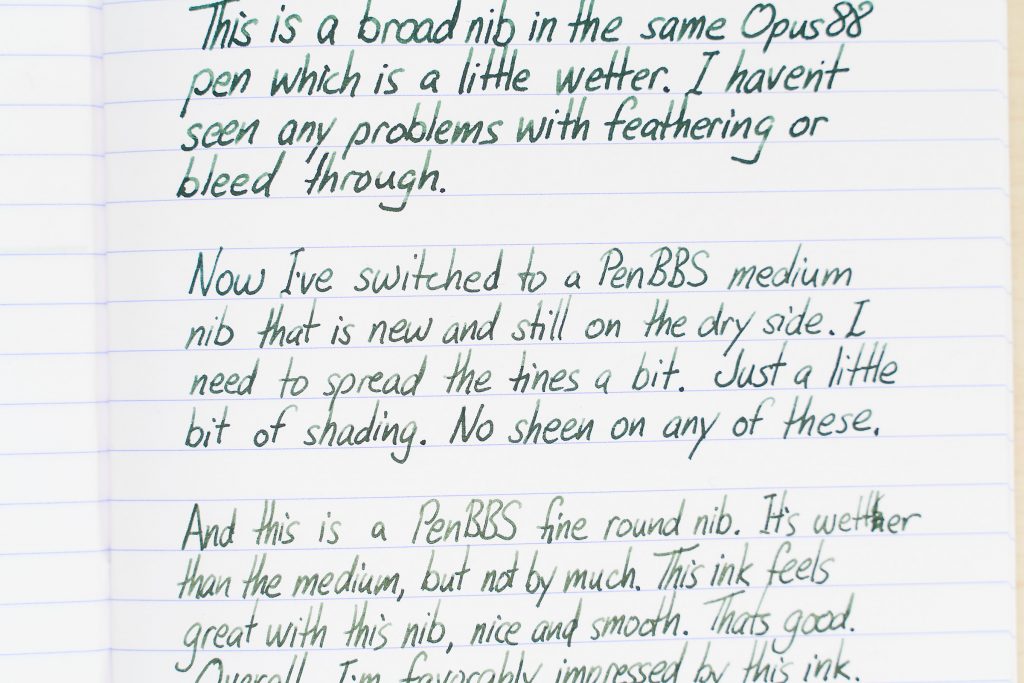 This is a broad nib in the same Opus 88
pen which is a little wetter. I haven't
seen any problems with feathering or
bleed through.
Now I've switched to a PenBBS medium
nib that is new and still on the dry side. I
need to spread the tines a bit. Just a little
bit of shading. No sheen on any of these.
And this is a PenBBS fine round nib. It's wetter
than the medium, but not by much. This ink feels
great with this nib, nice and smooth. Thats good.
Overall, I'm favorably impressed by this ink.